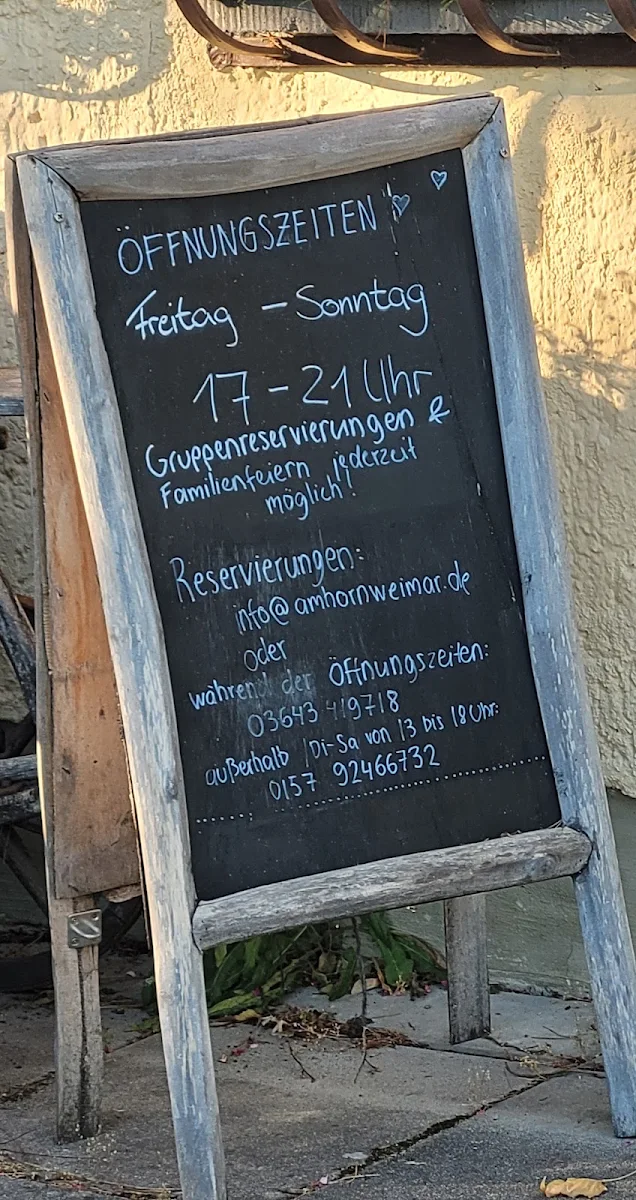 ÖFFNUNGSZEITEN
Freitag – Sonntag
17 – 21 Uhr
Gruppenreservierungen &
Familienfeiern jederzeit
möglich!
Reservierungen:
info@amhornweimar.de
oder
während der Öffnungszeiten:
03643 419718
außerhalb /Di-Sa von 13 bis 18 Uhr:
0157 92466732